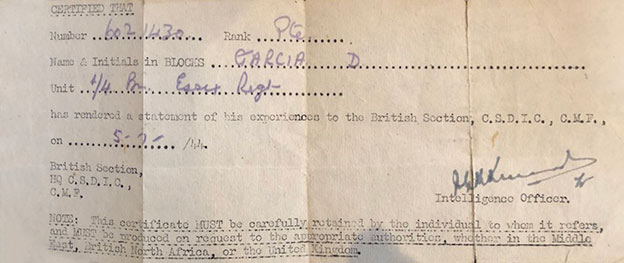 CERTIFIED THAT
Number ..6021430..... Rank ..Pte.......
Name & Initials in BLOCKS ...GARCIA.....D...............
Unit ..1/4 Bn. Essex Regt.............
has rendered a statement of his experiences to the British Section, C.S.D.I.C., C.M.F.,
on .......5-7-...... /44.
British Section,
HQ C.S.D.I.C.,
C.M.F.
Intelligence Officer.
NOTE: This certificate MUST be carefully retained by the individual to whom it refers,
and MUST be produced on request to the appropriate authorities, whether in the Middle
East, British North Africa, or the United Kingdom.